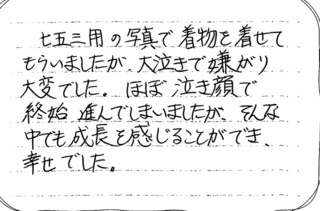 七五三用の写真で着物を着せて
もらいましたが、大泣きで嫌がり
大変でした。ほぼ泣き顔で
終始進んでしまいましたが、そんな
中でも成長を感じることができ、
幸せでした。